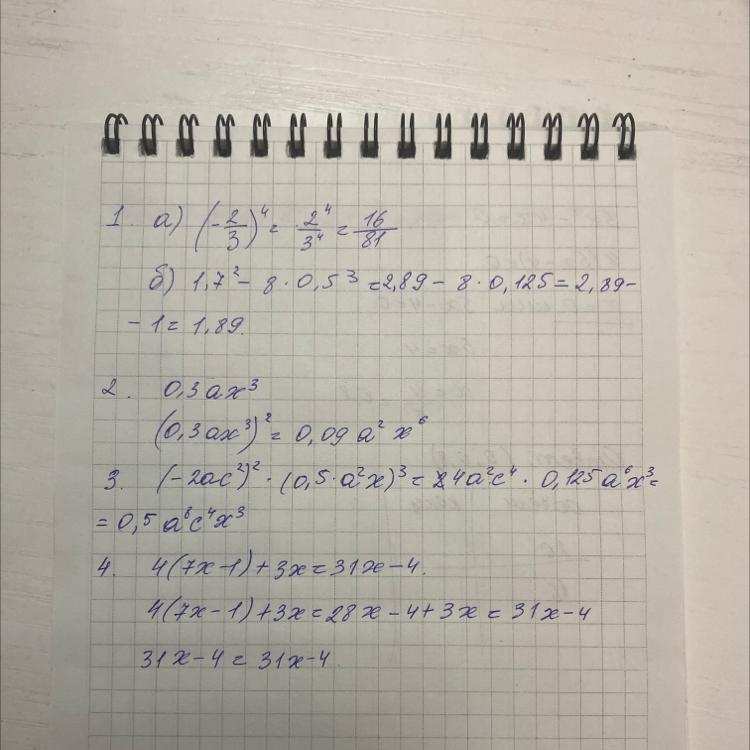 1. а) (-2/3)^4 = 2^4/3^4 = 16/81
б) 1,7² - 8 · 0,5³ = 2,89 - 8 · 0,125 = 2,89-
- 1 = 1,89.
2. 0,3ax³
(0,3ax³)² = 0,09 a² x⁶
3. (-2ac²)² · (0,5·a²x)³ = 4a²c⁴ · 0,125a⁶x³ =
= 0,5 a⁸c⁴x³
4. 4(7x-1)+3x=31x-4.
4(7x-1)+3x=28x-4+3x=31x-4
31x-4=31x-4